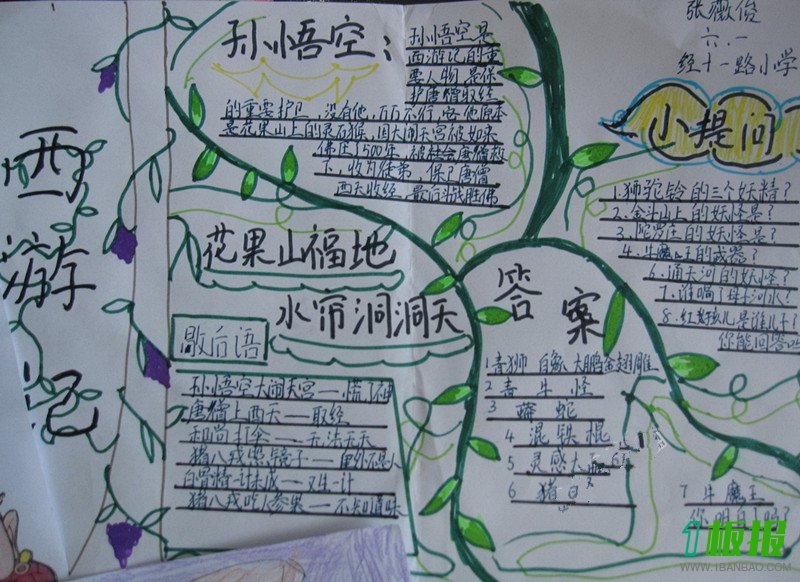 西游记
孙悟空：
孙悟空是
西游记的重
要人物，是保
护唐僧取经
的重要护卫，没有他，万万不行，
是花果山上的灵石猴，因大闹天宫被如来
佛压了500年，被
下，收为徒弟，保了唐僧
西天取经，最后斗战胜佛
花果山福地
水帘洞洞天
歇后语
孙悟空大闹天宫——慌了神
唐僧上西天——取经
和尚打伞——无法无天
猪八戒照镜子——里外不是人
白骨精一计未成——又生一计
猪八戒吃人参果——不知道味
张薇俊
六．一
经十一路小学
小提问
1．狮驼铃的三个妖精？
2．金斗山上的妖怪是？
3．陀罗庄的妖怪是？
4．牛魔王的武器？
6．通天河的妖怪？
7．谁喝了母子河水？
8．红孩儿是谁儿子？
你能回答吗
答案
1 青狮 白象 大鹏金翅雕
2 青牛怪
3 蟒蛇
4 混铁棍
5 灵感大
6 猪
7 牛魔王
你明白了吗？
板报
WWW.1BANBAO.COM